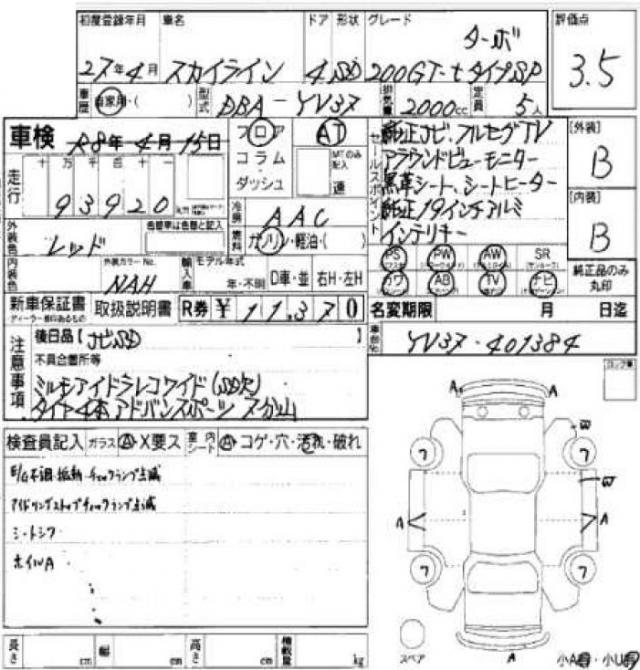 初度登録年月 車名 ドア 形状 グレード 評価点
ターボ
27年4月 スカイライン 4 SD 200GT-tタイプSP 3.5
車歴 自家用・( ) 型式 DBA-YV37 排気量 2000cc 定員 5人
車検 R8年4月15日 フロア AT セールスポイント 純正ナビ、フルセグTV [外装]
コラム・ダッシュ MTのみ記入 速 アラウンドビューモニター B
走行 十 万 千 百 十 一 黒革シート、シートヒーター
93920 冷房 AAC 純正19インチアルミ [内装]
外装色 レッド 色替車は色替と記入 燃料 ガソリン・軽油・( ) インテリキー B
内装色 外装カラーNo. NAH 輸入車 モデル年式 年・不明 D車・並 右H・左H
PS PW AW SR 純正品のみ丸印
カワ AB TV ナビ
新車保証書 取扱説明書 R券 ¥ 11,370 名変期限 月 日迄
ディーラー様印あるもの
注意事項 後日品【ナビSD 】 車台No. YV37-401384
不具合箇所等
ミルモアイドラレコワイド(SD欠)
タイヤ4本アドバンスポーツ 7分山
検査員記入 ガラス A・X要ス 室内シート A・コゲ・穴・汚れ・破れ
E/G不調・振動・チェックランプ点滅
アイドリングストップチェックランプ点滅
シートシワ
ホイルA
A A
W
フ フ
W
A A
フ フ
スペア A 小A有・小U有
長さ cm 幅 cm 高さ cm 積載量 kg